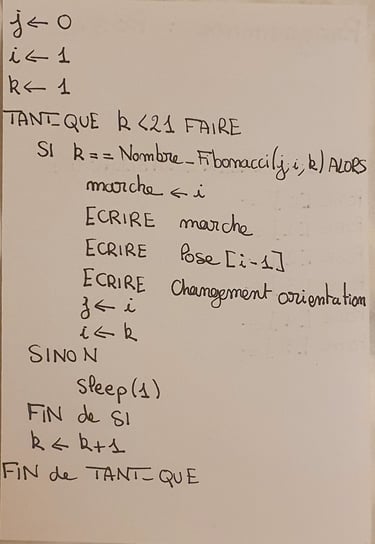 j ← 0
i ← 1
k ← 1
TANT_QUE k < 21 FAIRE
SI k == Nombre_Fibonacci(j,i,k) ALORS
marche ← i
ECRIRE marche
ECRIRE Pose [i-1]
ECRIRE Changement orientation
j ← i
i ← k
SINON
Sleep(1)
FIN de SI
k ← k+1
FIN de TANT_QUE